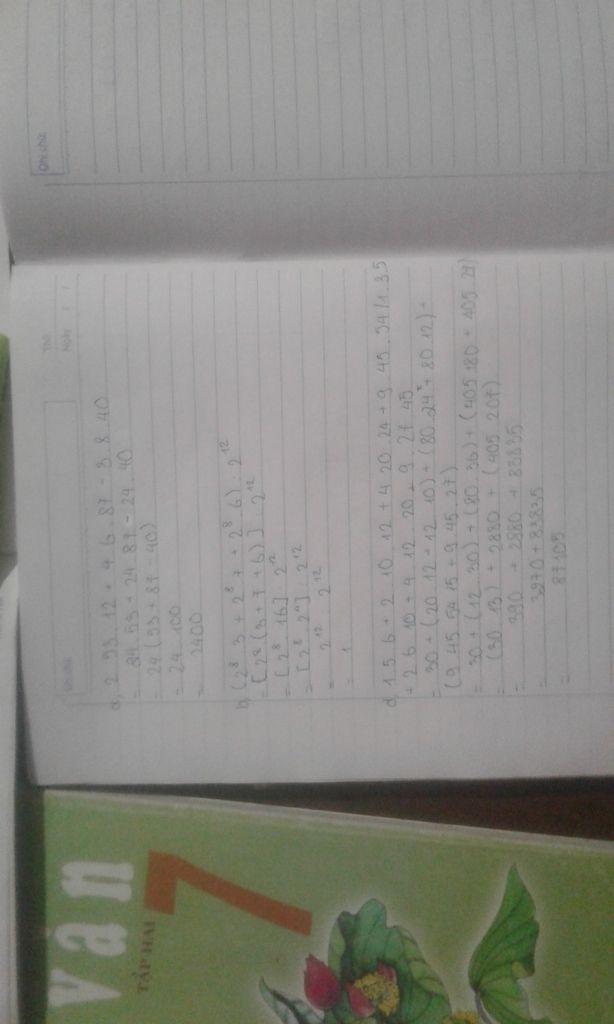 Ghi chú
Thứ
Ngày
Ghi chú
a, 2 53 12 + 4 6 . 87 - 3 8 40
= 24 53 + 24 87 - 24 . 40
= 24 (53 + 87 - 40)
= 24 . 100
= 2400
b, (2⁸ 3 + 2⁸ 7 + 2⁸ 6) : 2¹²
= [2⁸ (3 + 7 + 6)] : 2¹²
= [2⁸ 16] : 2¹²
= [2⁸ 2⁴] : 2¹²
= 2¹² : 2¹²
= 1
1 5 6 + 2 10 12 + 4 20 24 + 9 45 . 54 / 1 . 3 5
+ 2 6 10 + 4 12 20 + 9 27 45
= 30 + (20 12 + 12 10) + (80 24 + 80 12) +
(9 45 54 + 9 45 27)
= 30 + (12 30) + (80 36) + (405 180 + 405 27)
= (30 13) + 2880 + (405 207)
= 390 + 2880 + 83835
= 3270 + 83835
= 87105
Văn
7
TẬP HAI